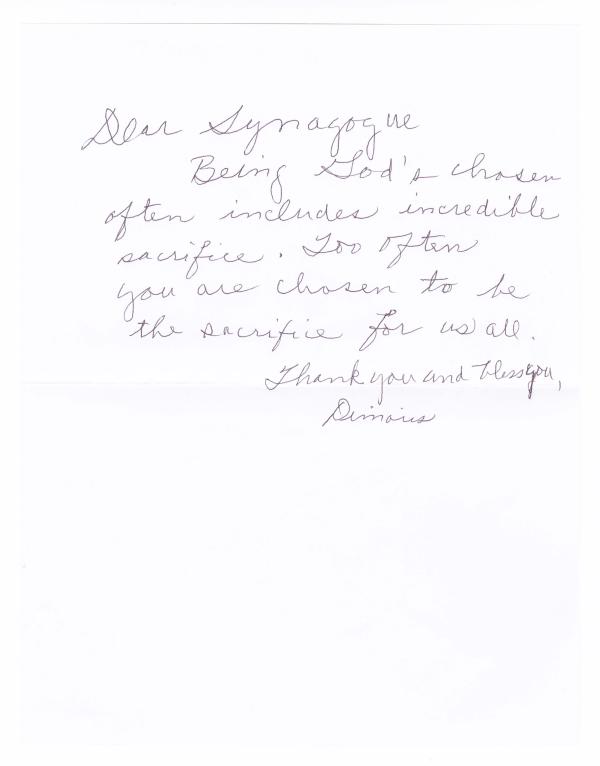 Dear Synagogue
Being God's chosen
often includes incredible
sacrifice. Too often
you are chosen to be
the sacrifice for us all.
Thank you and bless you,